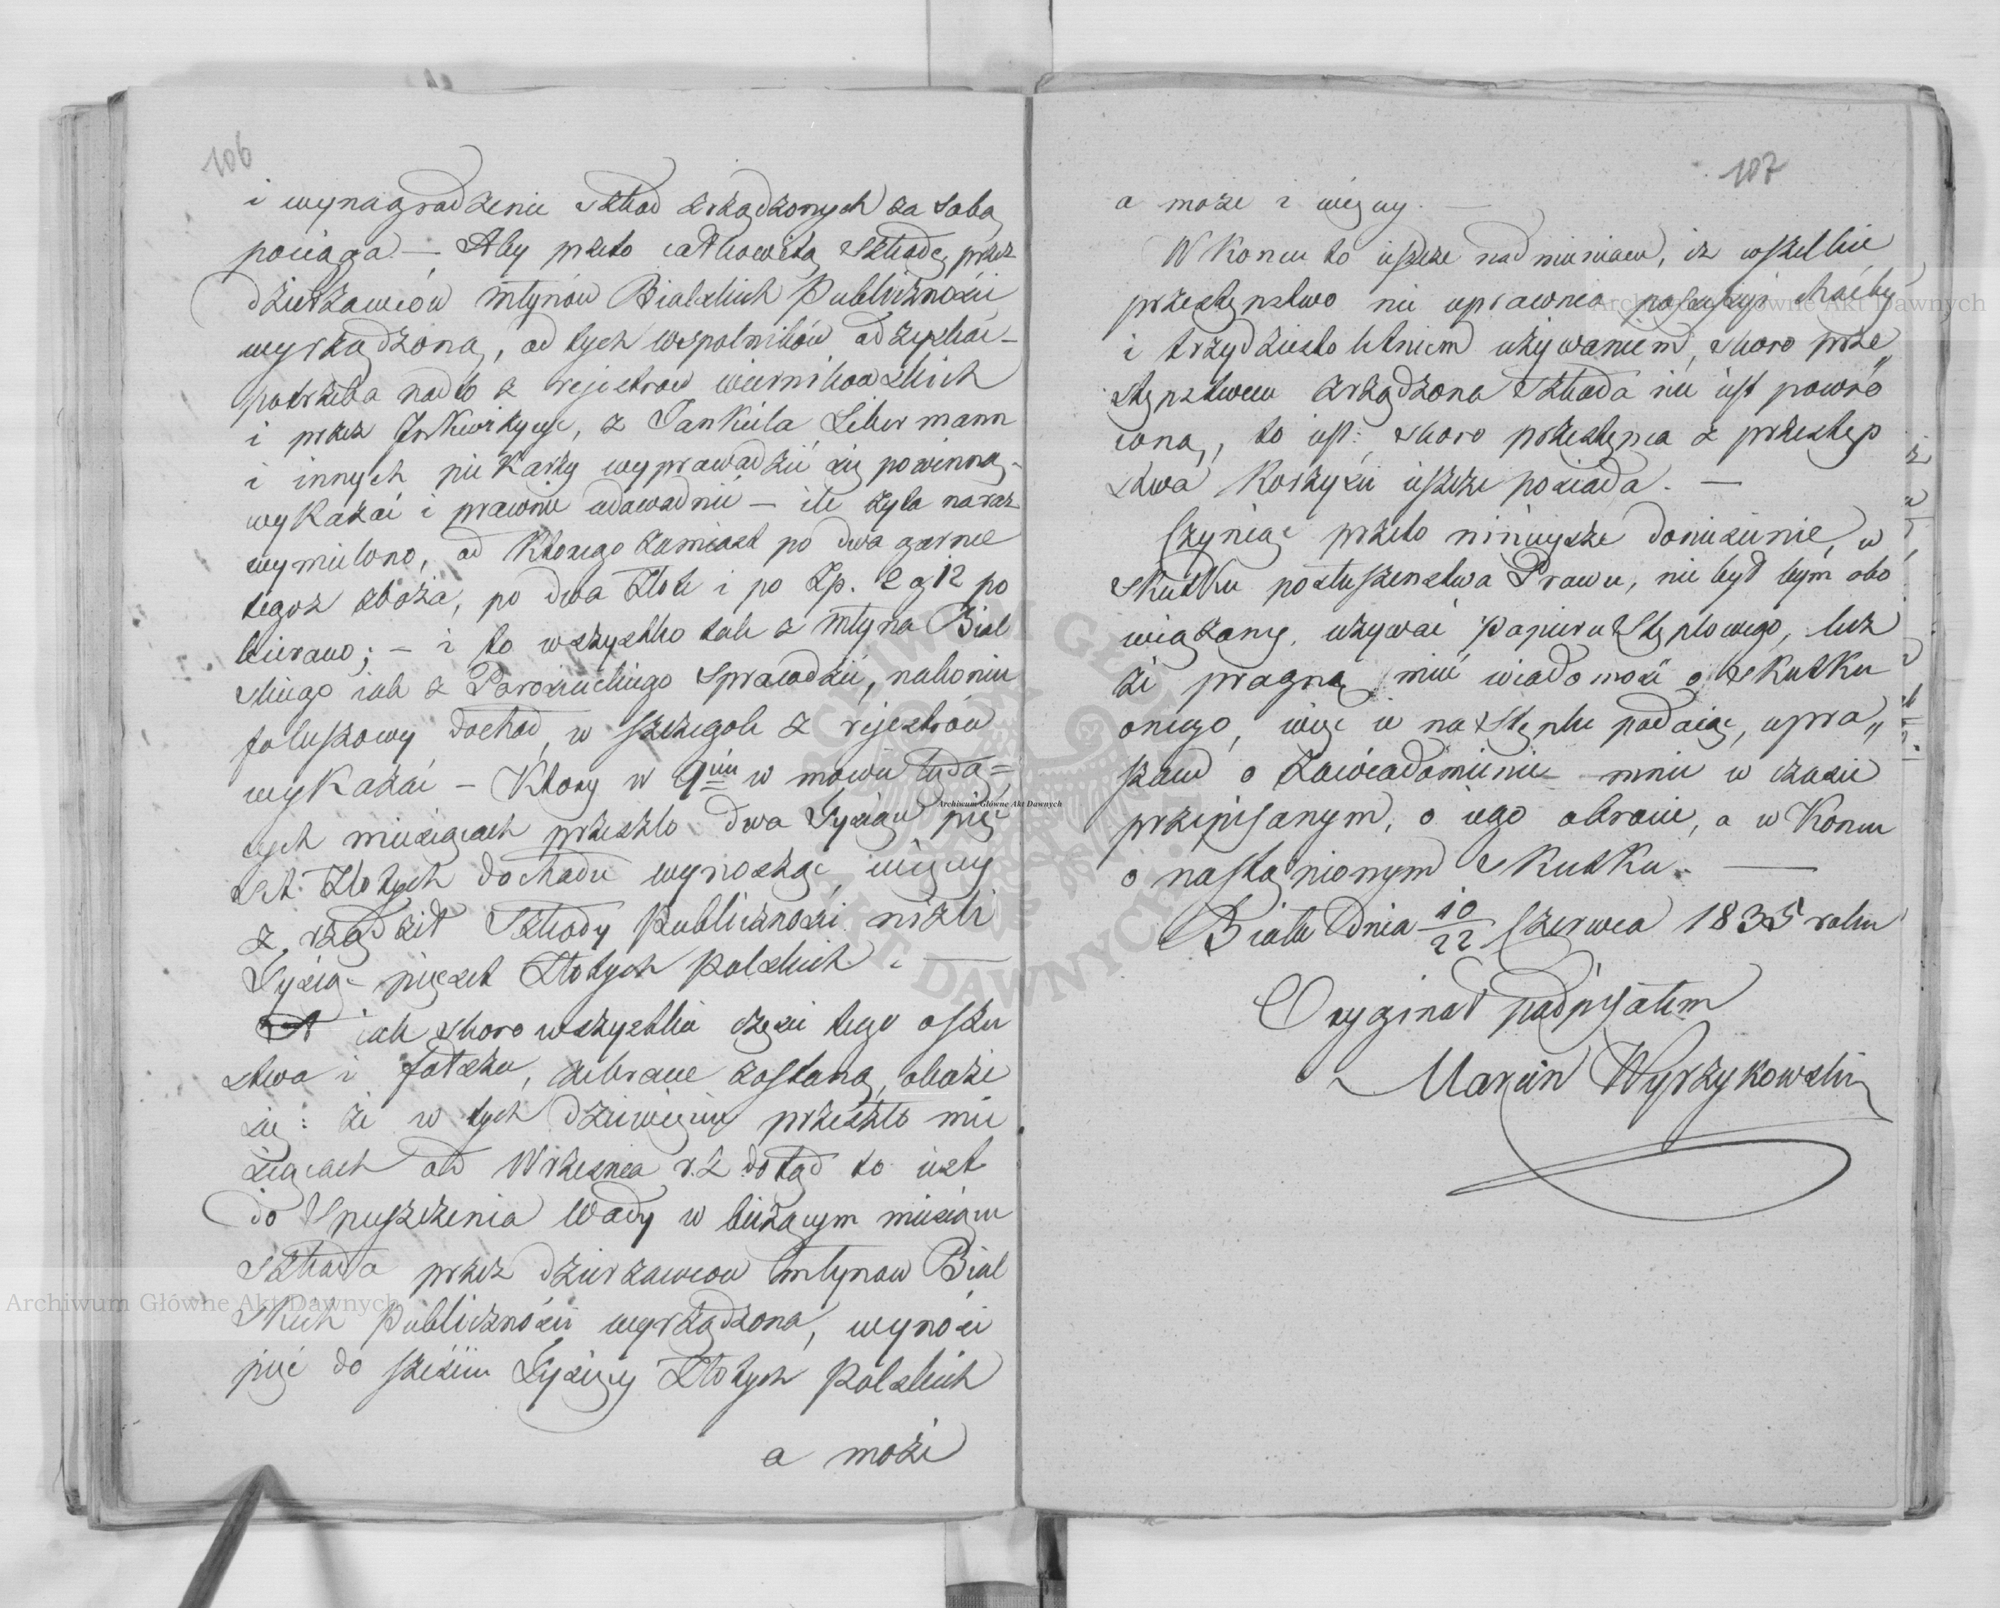 106
i wynagradzenie szkod zrządzonych za sobą
pociąga. — Aby przeto całkowitą szkodę przez
dzierżawców młynów Bialskich Publiczności
wyrządzoną, od tych wspolników odzyskać –
potrzeba nadto z rejestrow wiernikowskich
i przez Jnkwizycye, z Jankiela Liber mann
i innych piekarzy wyprawadzić się powinną,
wykazać i prawnie udowadnić — ile żyta naraz
wymielono, od ktorego zamiast po dwa garnce
tegoż zboża, po dwa złote i po Zp. 2 g 12 po
bierano; — i to wszystko tak z młyna Bial
skiego iak z Porosiuckiego sprawdzić, nakoniec
foluszowy dochod, w szczegole z rejestrów
wykazać – Ktory w 9ciu w mowie będą=
cych miesiącach przeszło dwa Tysiące pięć
set Złotych dochodu wynosząc, więcey
z,rządził szkody Publicznosci niżli
Tysiąc pięcset Złotych Polskich. —
iak skoro wszystkie części tego oszu
stwa i fałszu, zebrane zostaną, okaże
się: że w tych dziewięciu przeszło mie
siącach od Wrzesnia r. z dotąd to iest
do spuszczenia wody w bieżącym miesiącu
szkoda przez dzierżawcow młynow Bial
skich Publicznósci wyrządzona, wynosi
pięć do sześciu Tysięcy Złotych Polskich
a może
107
a może i więcey. —
W koncu to ieszcze nadmieniam, iż wszelkie
przestępstwo nie uprawnia possessyi choćby
i trzydziesto letniem używaniem, skoro prze„
stępstwem zrządzona szkoda nie iest powró
coną, to iest: skoro przestępca z przestęp
stwa korzyści ieszcze posiada. —
Czyniąc przeto nińieysze doniesienie, w
skutku posłuszenstwa Prawu, nie był bym obo
wiązany, używać papieru Stęplowego, lecz
że pragnę mieć wiadomość o skutku
onego, więc ie na Stęplu podaię, upra„
szam o Zawiadomienie mnie w czasie
przepisanym, o iego obrocie, a w koncu
o nastąpionym skutku. —
Biała dnia 10/22 Czerwca 1835 roku
Oryginał podpisałem
Marcin Wyrzykowski
Archiwum Główne Akt Dawnych
Archiwum Główne Akt Dawnych
Archiwum Główne Akt Dawnych
ARCHIWUM GŁÓWNE AKT DAWNYCH